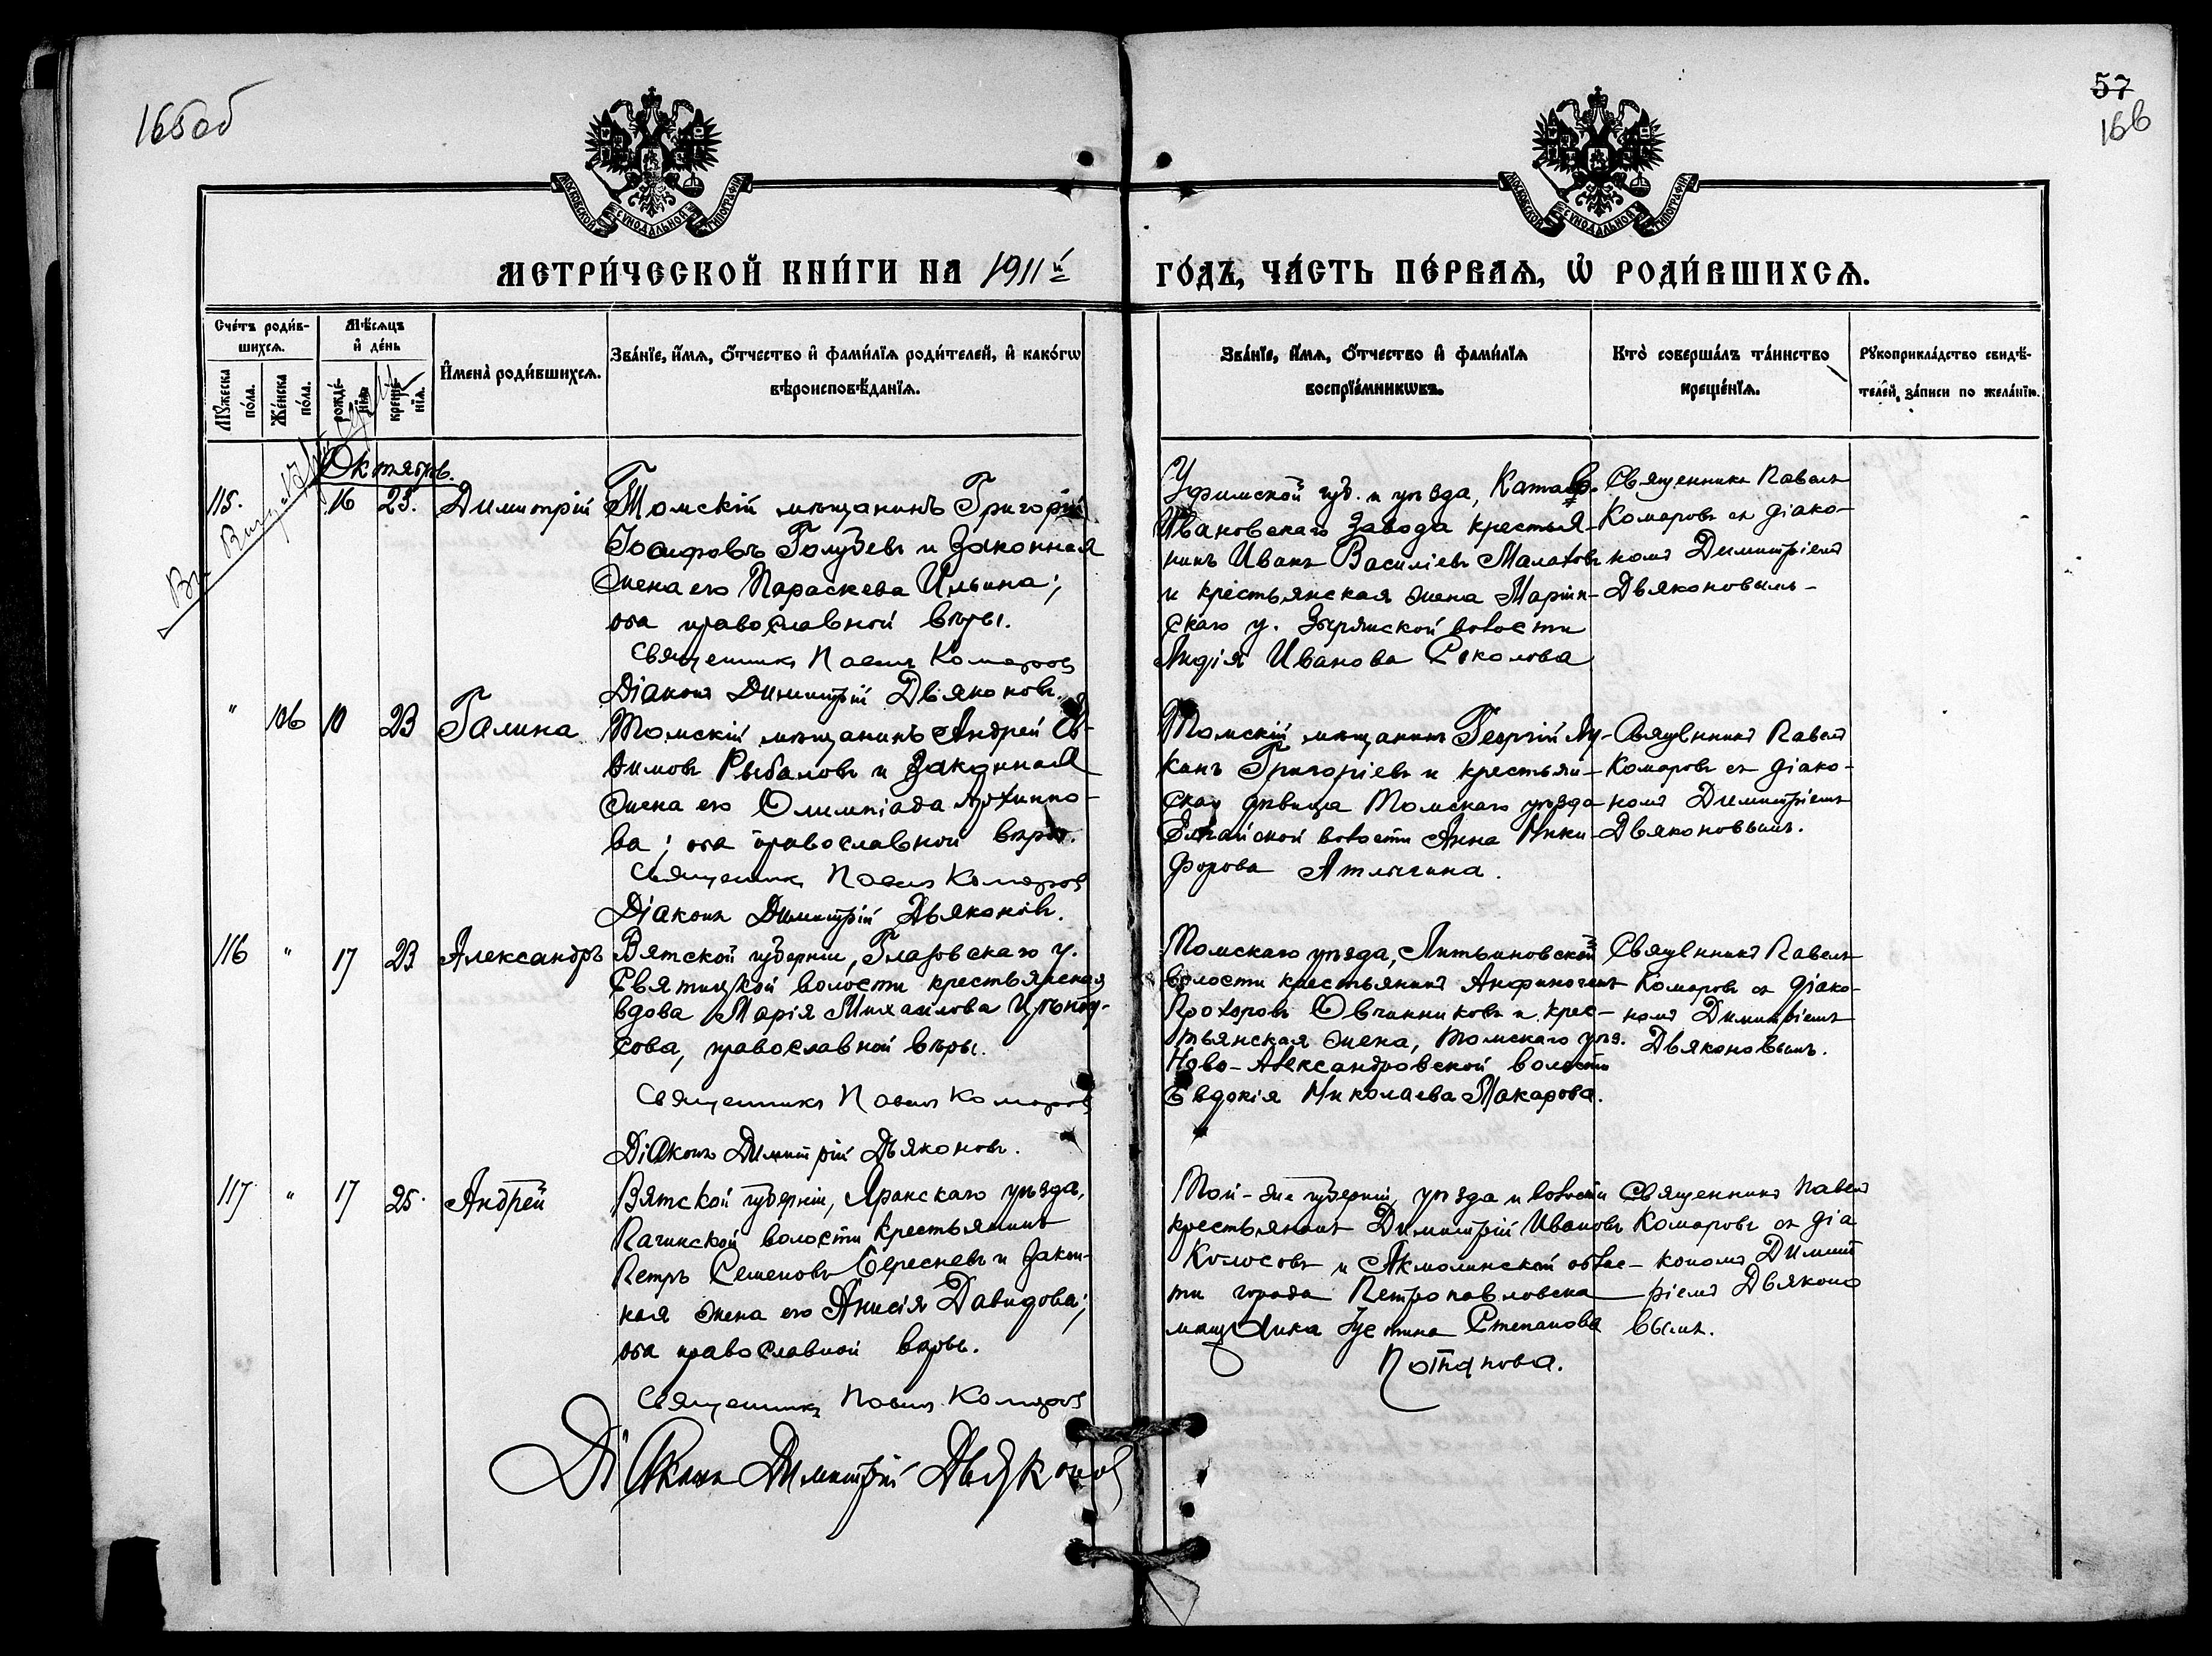 165об
57
166
МОСКОВСКОЙ СУНОДАЛЬНОЙ ТИПОГРАФІИ
МОСКОВСКОЙ СУНОДАЛЬНОЙ ТИПОГРАФІИ
МЕТРИ́ЧЕСКОЙ КНИ́ГИ НА 1911й ГО́ДЪ, ЧА́СТЬ ПЕ́РВАѦ, Ѡ҆ РОДИ́ВШИХСѦ.
Сче́тъ роди́в-
шихсѧ.
Мꙋ́жеска по́ла.
Же́нска по́ла.
Мѣ́сѧцъ
и҆ де́нь
рожде́-
нїѧ.
креще́-
нїѧ.
И҆мена̀ роди́вшихсѧ.
Зва́нїе, и҆́мѧ, ѻ҆́тчество и҆ фами́лїѧ роди́телей, и҆ како́гѡ
вѣроисповѣ́данїѧ.
Зва́нїе, и҆́мѧ, ѻ҆́тчество и҆ фами́лїѧ
воспрїе́мникѡвъ.
Кто̀ соверша́лъ та́инство
креще́нїѧ.
Рꙋкоприкла́дство свидѣ́-
телей, за́писи по жела́нїю.
Октябрь.
115.
16
23.
Димитрій
Томскій мѣщанинъ Григорій
Іосифовъ Голубевъ и законная
жена его Параскева Ильина;
оба православной вѣры.
Священникъ Павелъ Комаровъ
Діаконъ Димитрій Дьяконовъ.
Уфимской губ. и уѣзда, Катавъ-
Ивановскаго завода крестья-
нинъ Иванъ Василіевъ Малаховъ
и крестьянская жена Маріин-
скаго у. Зырянской волости
Лидія Иванова Соколова
Священникъ Павелъ
Комаровъ съ діако-
номъ Димитріемъ
Дьяконовымъ-
"
106
10
23
Галина
Томскій мѣщанинъ Андрей Ев-
фимовъ Рыбаловъ и законная
жена его Олимпіада Архиппо-
ва; оба православной вѣры.
Священникъ Павелъ Комаровъ
Діаконъ Димитрій Дьяконовъ.
Томскій мѣщанинъ Георгій Лу-
кинъ Григоріевъ и крестьян-
ская дѣвица Томскаго уѣзда
Елгайской волости Анна Ники-
форова Атлыгина.
Священникъ Павелъ
Комаровъ съ діако-
номъ Димитріемъ
Дьяконовымъ.
116
"
17
23
Александръ
Вятской губерніи, Глазовскаго у.
Святицкой волости крестьянская
вдова Марія Михаилова
сова, православной вѣры.
Священникъ Павелъ Комаровъ
Діаконъ Димитрій Дьяконовъ.
Томскаго уѣзда,
волости крестьянинъ Анфиногенъ
Прохоровъ Овчинниковъ и крес-
тьянская жена, Томскаго уѣз.
Ново-Александровской волости
Евдокія Николаева Макарова.
Священникъ Павелъ
Комаровъ съ діако-
номъ Димитріемъ
Дьяконовымъ.
117
"
17
25.
Андрей
Вятской губерніи, Яранскаго уѣзда,
Пачинской волости крестьянинъ
Петръ Семеновъ Бересневъ и закон-
ная жена его Анисія Давидова;
оба православной вѣры.
Священникъ Павелъ Комаровъ
Діаконъ Димитрій Дьяконовъ
Той-же губерніи, уѣзда и волости
крестьянинъ Димитрій Ивановъ
Колосовъ и Акмолинской облас-
ти города Петропавловска
мѣщанка Іустина Степанова
Потапова.
Священникъ Павелъ
Комаровъ съ діа
кономъ Димит
ріемъ Дьяконо
вымъ.